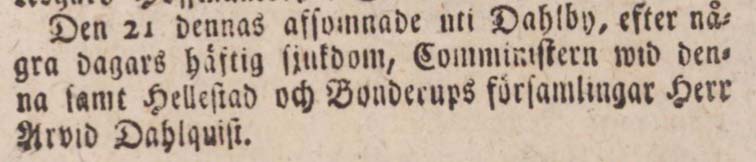 Den 21 dennas afsomnade uti Dahlby, efter nå-
gra dagars häftig sjukdom, Comministern wid den-
na samt Hellestad och Bonderups församlingar Herr
Arvid Dahlquist.